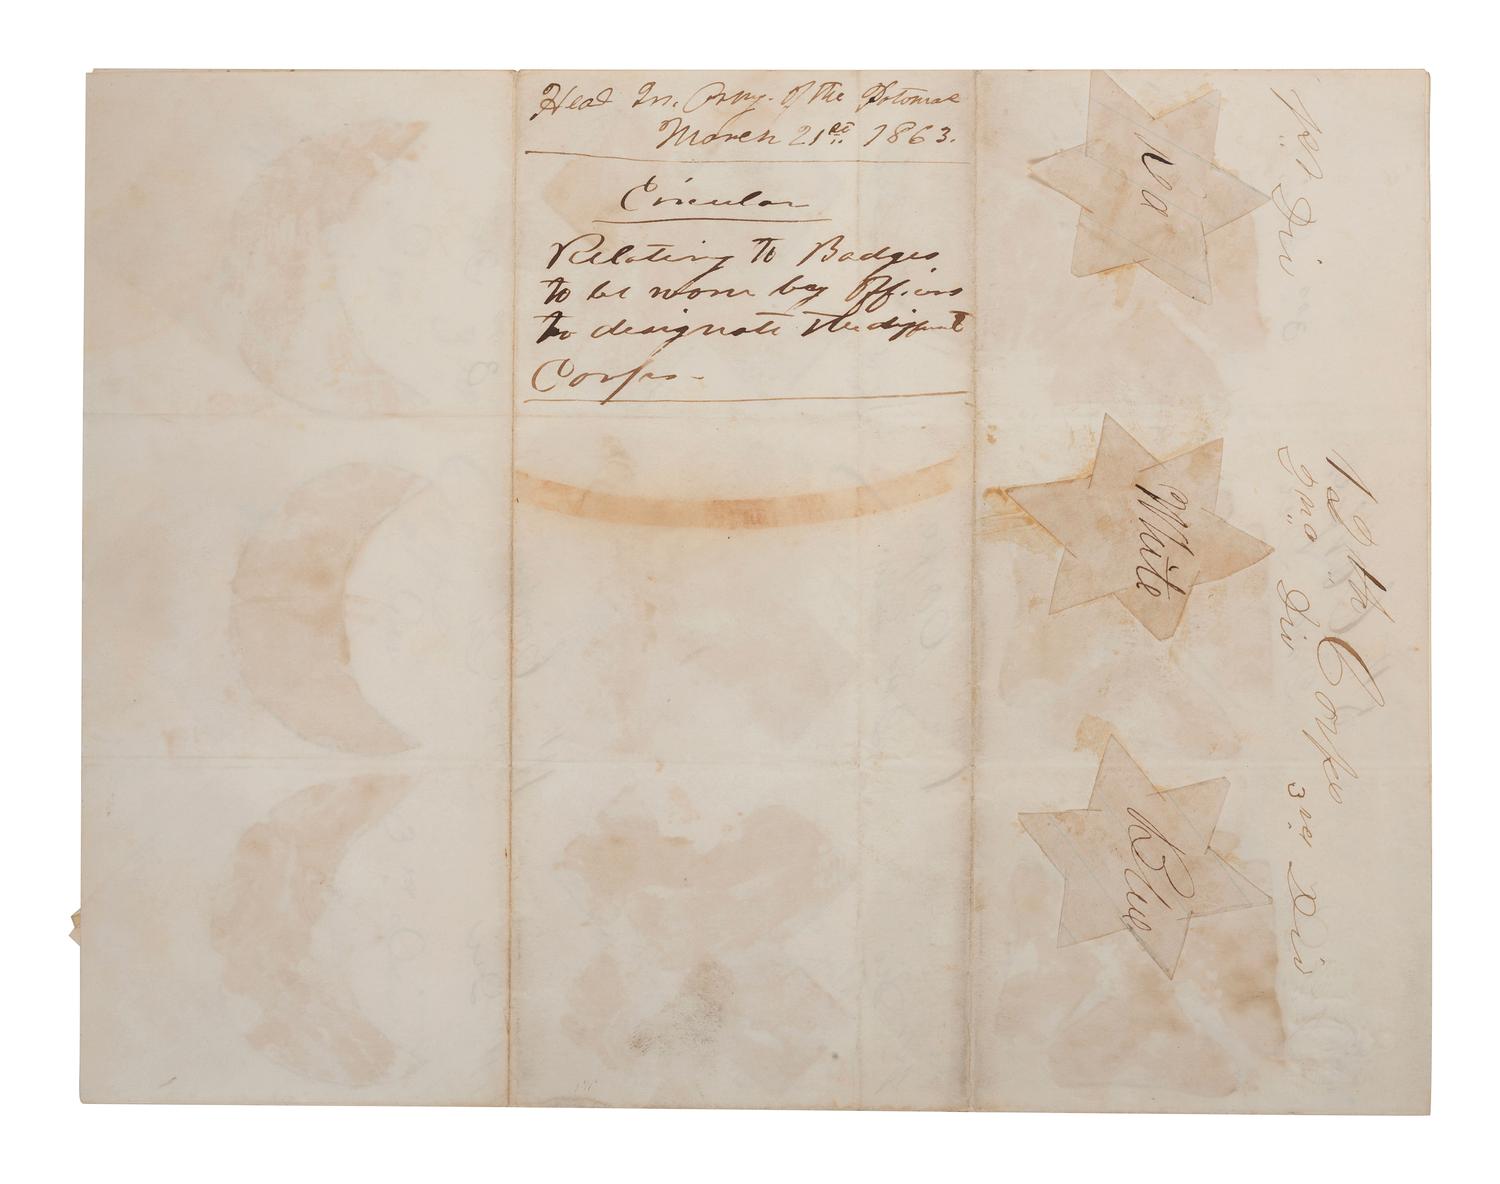 Head Qrs. Army. of the Potomac
March 21st 1863.
Circular
Relating to Badges
to be worn by Officers
to designate the different
Corps.
12th Corps
1st Div
2nd Div
3rd Div
Red
White
Blue